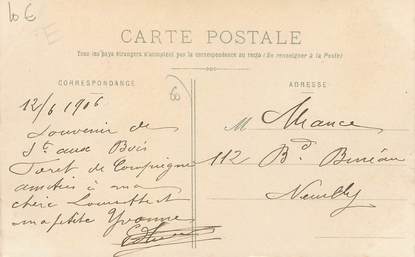 10 €
CARTE POSTALE
Tous les pays étrangers n'acceptent pas la correspondance au recto (Se renseigner à la Poste)
CORRESPONDANCE
12/6 1906
Souvenir de
St aux Bois
Foret de Compiegne
amitiés à ma
chère
ma petite Yvonne
ADRESSE
M Mance
112 Bd Bineau
Neuilly